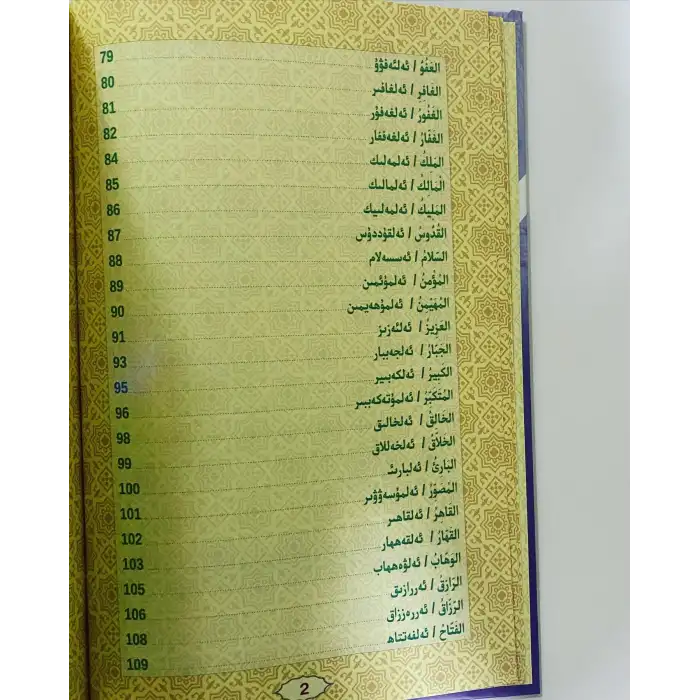 العَفُوُّ / ئەلئەفۇۋۇ 79
الغافِرِ / ئەلغافىر 80
الغَفُورُ / ئەلغەفۇر 81
الغَفّارُ / ئەلغەففار 82
المَلِكُ / ئەلمەلىك 84
الْمَالِكُ / ئەلمالىك 85
المَلِيكُ / ئەلمەلىيك 86
القُدُّوسُ / ئەلقۇددۇس 87
السَّلامُ / ئەسسەلام 88
المُؤْمِنُ / ئەلمۇئمىن 89
المُهَيْمِنُ / ئەلمۇھەيمىن 90
العَزِيزُ / ئەلئەزىز 91
الجَبّارُ / ئەلجەببار 93
الكَبِيرُ / ئەلكەبىير 95
المُتَكَبِّرُ / ئەلمۇتەكەببىر 96
الخالِقُ / ئەلخالىق 98
الخلاَّقُ / ئەلخەللاق 99
البَارِئُ / ئەلبارىئ 100
المُصَوِّرُ / ئەلمۇسەۋۋىر 101
القاهِرُ / ئەلقاھىر 102
القَهّارُ / ئەلقەھھار 103
الوَهابُ / ئەلۋەھھاب 105
الرّازِقُ / ئەررازىق 106
الرَّزّاقُ / ئەررەززاق 108
الفَتّاحُ / ئەلفەتتاھ 109
2